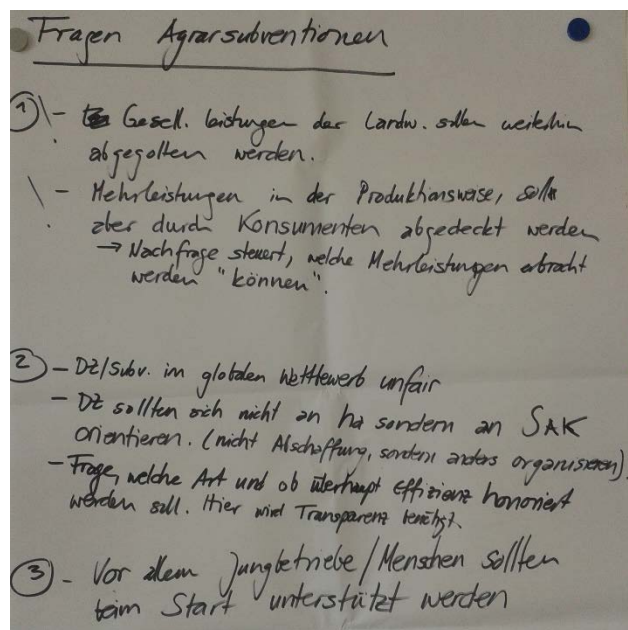 Fragen Agrarsubventionen
1 - Gesell. Leistungen der Landw. sollen weiterhin
abgegolten werden.
- Mehrleistungen in der Produktionsweise, sollen
aber durch Konsumenten abgedeckt werden
→ Nachfrage steuert, welche Mehrleistungen erbracht
werden "können".
2 - DZ/Subv. im globalen Wettbewerb unfair
- DZ sollten sich nicht an ha sondern an SAK
orientieren. (nicht Abschaffung, sondern anders organisieren)
- Frage, welche Art und ob überhaupt Effizienz honoriert
werden soll. Hier wird Transparenz benötigt.
3 - Vor allem Jungbetriebe/Menschen sollten
beim Start unterstützt werden